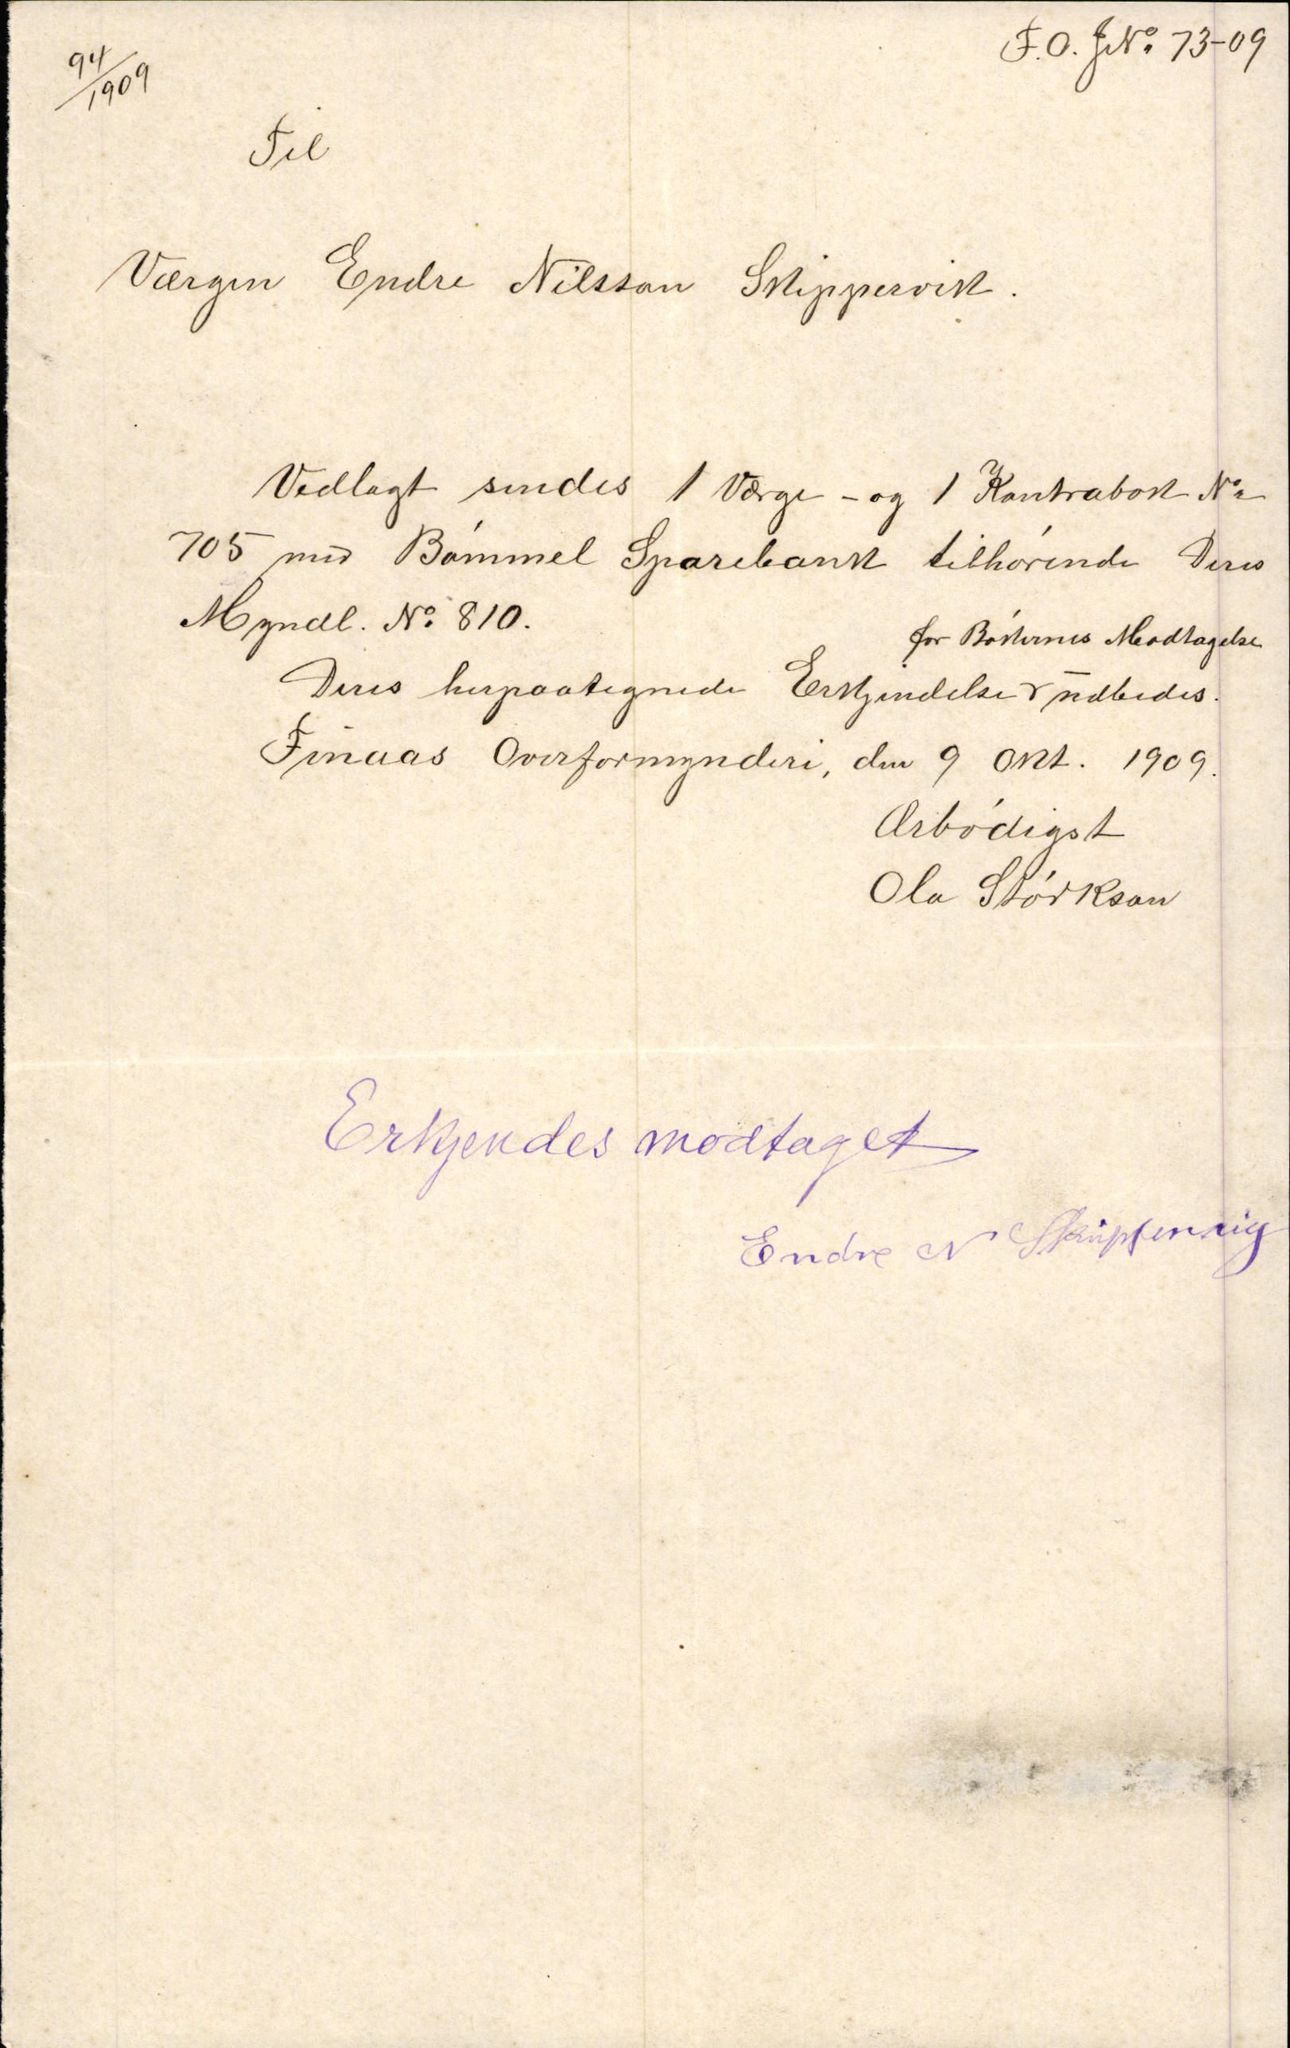 94/1909
F. O. J No. 73-09
Til
Værgen Endre Nilsson Skippervik.
Vedlagt sendes 1 Værge - og 1 Kontrabok No.
705 med Bømmel Sparebank tilhørende Deres
Myndl. No. 810.
for Bøkernes Modtagelse
Deres herpaategnede Erkjendelse udbedes.
Finaas Overformynderi, den 9 Okt. 1909.
Ærbødigst
Ola Størkson
Erkjendes modtaget
Endre N